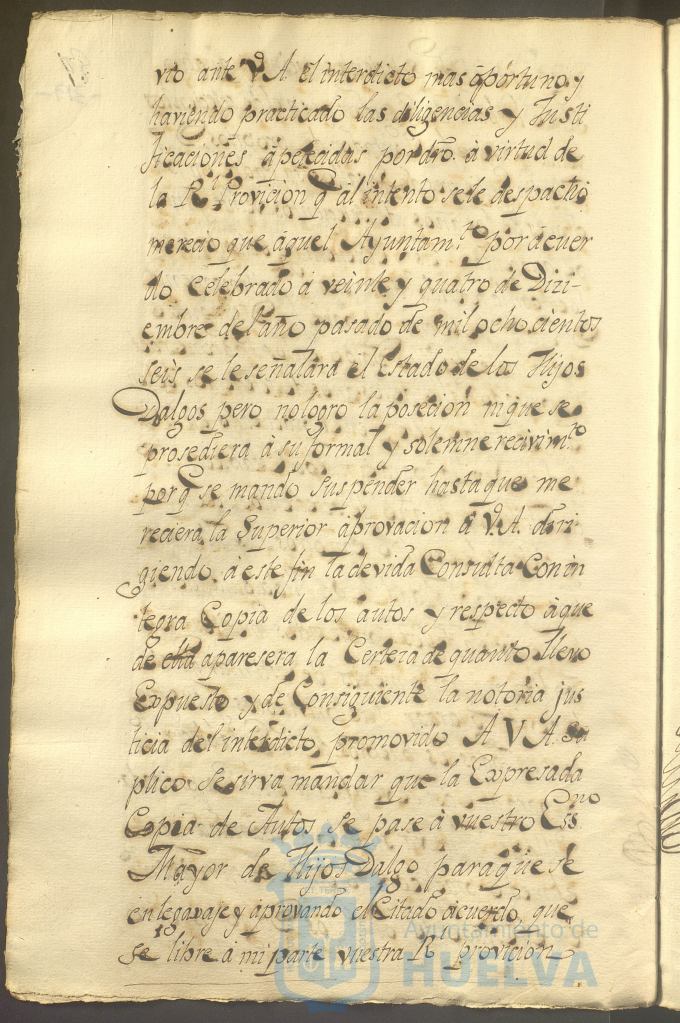 vio ante V.A. el interdicto mas òportuno, y
haviendo practicado las diligencias y Justi
ficaciones apetecidas por dro. a virtud de
la Rl. Provicion q al intento se le despachó
merecio que aquel Ayuntamto. por acuer
do celebrado a veinte y quatro de Dizi-
embre del año pasado de mil ochocientos
seis se le señalara el Estado de los Hijos
Dalgos pero no logro la posecion ni que se
prosediera à su formal y solemne recivimto.
por q se mando suspender hasta que me
reciera la Superior aprovacion de V.A. diri
giendo à este fin la devida Consulta Con in
tegra Copia de los autos y respecto àque
de ella aparesera la Certeza de quanto llevo
Expuesto y de Consiguiente la notoria jus
ticia del interdicto promovido A V.A. Su
plico se sirva mandar que la Expresada
Copia de Autos se pase à vuestro Essno
Mayor de Hijos Dalgo para que se
en legavaje y aprovando el Citado acuerdo, que
se libre à mi parte vuestra Rl. provicion
Ayuntamiento de
HUELVA